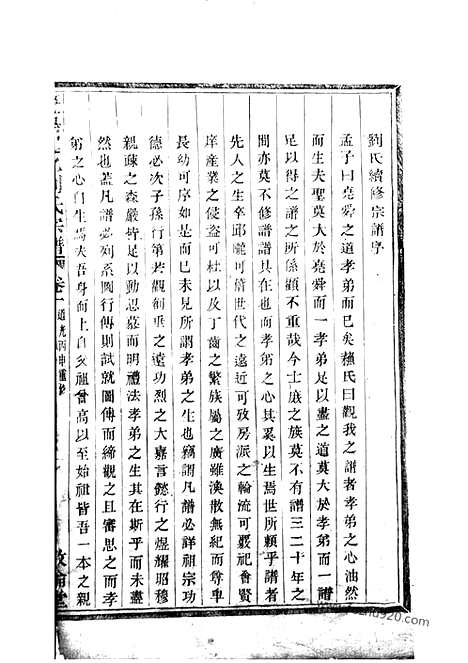 劉氏續修宗譜序
孟子曰堯舜之道孝弟而已矣蘇氏曰觀我之譜者孝弟之心油然
而生夫聖莫大於堯舜而一孝弟足以盡之道莫大於孝弟而一譜
足以得之譜之所係顧不重哉今士庶之族莫不有譜三二十年之
間亦莫不修譜譜其在也而孝弟之心其奚以生焉世所賴乎譜者
先人之生卒邱隴可倍世代之遠近可攷房派之輪流可覈祀會賢
庠產業之侵盜可杜以及丁齒之繁族屬之廣雖渙散無紀而尊卑
長幼可序如是而已未見所謂孝弟之生也竊謂凡譜必詳祖宗功
德必次子孫行第若觀創垂之遠功烈之大嘉言懿行之煜耀昭穆
親疎之森嚴皆足以動思慕而明禮法孝弟之生其在斯乎而未盡
然也蓋凡譜必列系圖行傳則試就圖傳而締觀之且審思之而孝
弟之心自生焉夫吾身而上自父祖曾高以至始祖皆吾一本之親
劉氏宗譜 卷一 道光丙申重修
敦 堂
www.jiapu920.com